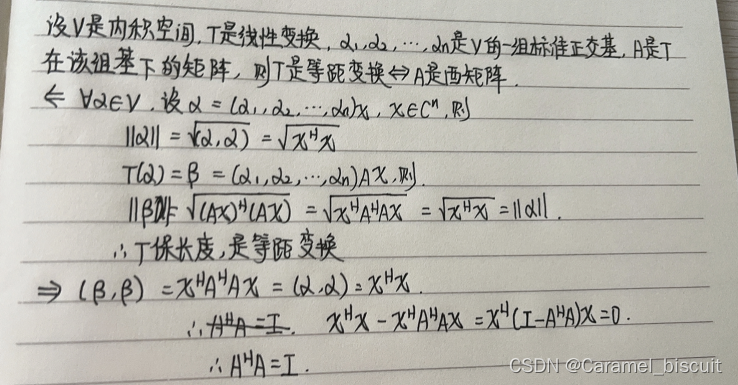 设V是内积空间,T是线性变换,α₁,α₂,⋯,αn是V的一组标准正交基,A是T
在该组基下的矩阵,则T是等距变换⇔A是酉矩阵.
⇐ ∀α∈V,设α=(α₁,α₂,⋯,αn)x,x∈Cⁿ,则
||α||=√(α,α)=√xᴴx
T(α)=β=(α₁,α₂,⋯,αn)Ax,则.
||β||=√(Ax)ᴴ(Ax)=√xᴴAᴴAx=√xᴴx=||α||.
∴T保长度,是等距变换
⇒ (β,β)=xᴴAᴴAx=(α,α)=xᴴx.
∴AᴴA=I. xᴴx-xᴴAᴴAx=xᴴ(I-AᴴA)x=0.
∴AᴴA=I.
CSDN @Caramel_biscuit